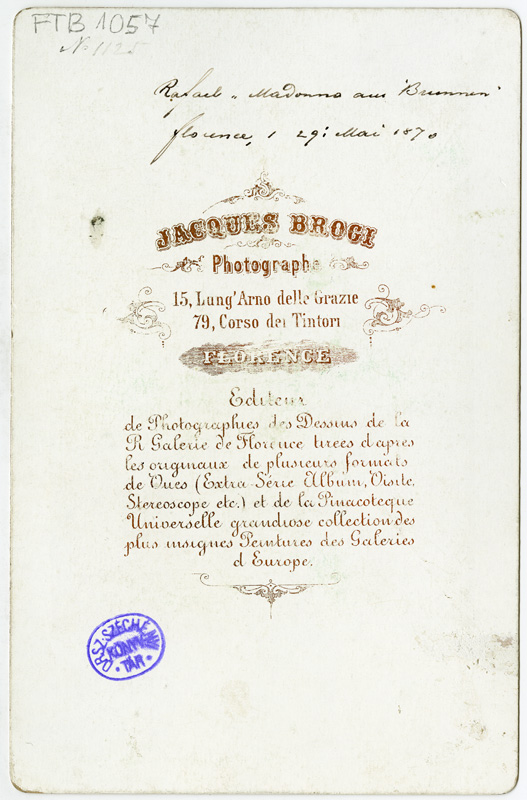 FTB 1057
N. 1125
Rafael „ Madonna am Brunnen"
florence, 1 29: Mai 1870
JACQUES BROGI
Photographe
15, Lung'Arno delle Grazie
79, Corso dei Tintori
FLORENCE
Editeur
de Photographies des Dessins de la
R Galerie de Florence tirées d'aprés
les originaux de plusieurs formats
de Vues (Extra-Série Album, Visite,
Stereoscope etc.) et de la Pinacoteque
Universelle grandiose collection des
plus insignes Peintures des Galeries
d'Europe.
ORSZ. SZÉCHÉNYI
KÖNYV
TÁR